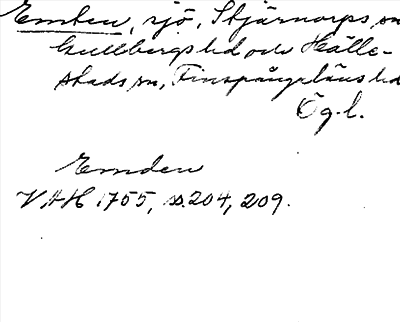 Emten, sjö, Stjärnorps sn
Gullbergs hd och Hälle-
stads sn, Finspångaläns hd
Ög. l.
Emnden
VAH 1755, s. 204, 209.